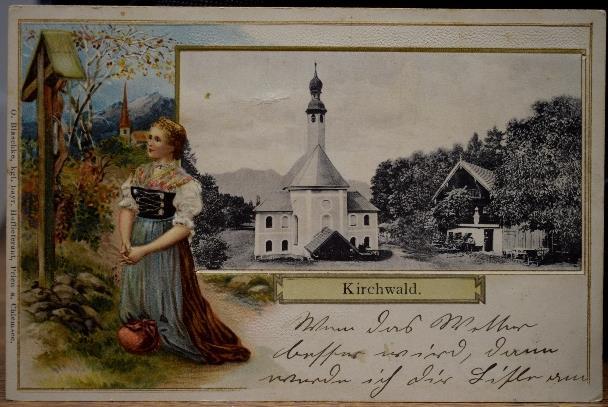 O. Blaschke, kgl. bayr. Hoflieferant, Prien a. Chiemsee.
Kirchwald.
Wenn das Wetter
besser wird, dann
werde ich dir am